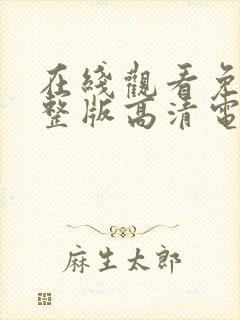 在綫觀看免
整版高清電
麻生太郎